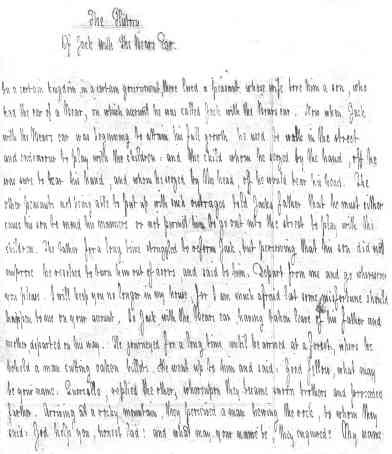 The History
Of Jack with the Bears Ear.
In a certain kingdom, in a certain government, there lived a peasant, whose wife bore him a son, who
had the ear of a Bear, on which account he was called Jack with the Bears ear. Now when Jack
with the Bears ear was beginning to attain his full growth he used walk in the street
and endeavour to play with the children: and the child whom he seized by the hand, off he
was sure to tear his hand, and whom he seized by the head, off he would tear his head. The
other peasants not being able to put up with such outrages told Jacks father that he must either
cause his son to mend his manners or not permit him to go out into the street to play with the
children. The father for a long time struggled to reform Jack, but perceiving that his son did not
improve he resolved to turn him out of doors and said to him. Depart from me and go wheresoever
you please. I will keep you no longer in my house, for I am much afraid lest some misfortune should
happen to me on your account. So Jack with the Bears ear, having taken leave of his father and
mother departed on his way. He journeyed for a long time until he arrived at a forest, where he
beheld a man cutting oaken billets. He went up to him and said: Good fellow, what may
be your name. Quercillo, replied the other, whereupon they became sworn brothers and proceeded
further. Arriving at a rocky mountain, they perceived a man hewing the rock, to whom they
said: God help you, honest lad! and what may your name be? They enquired: My name